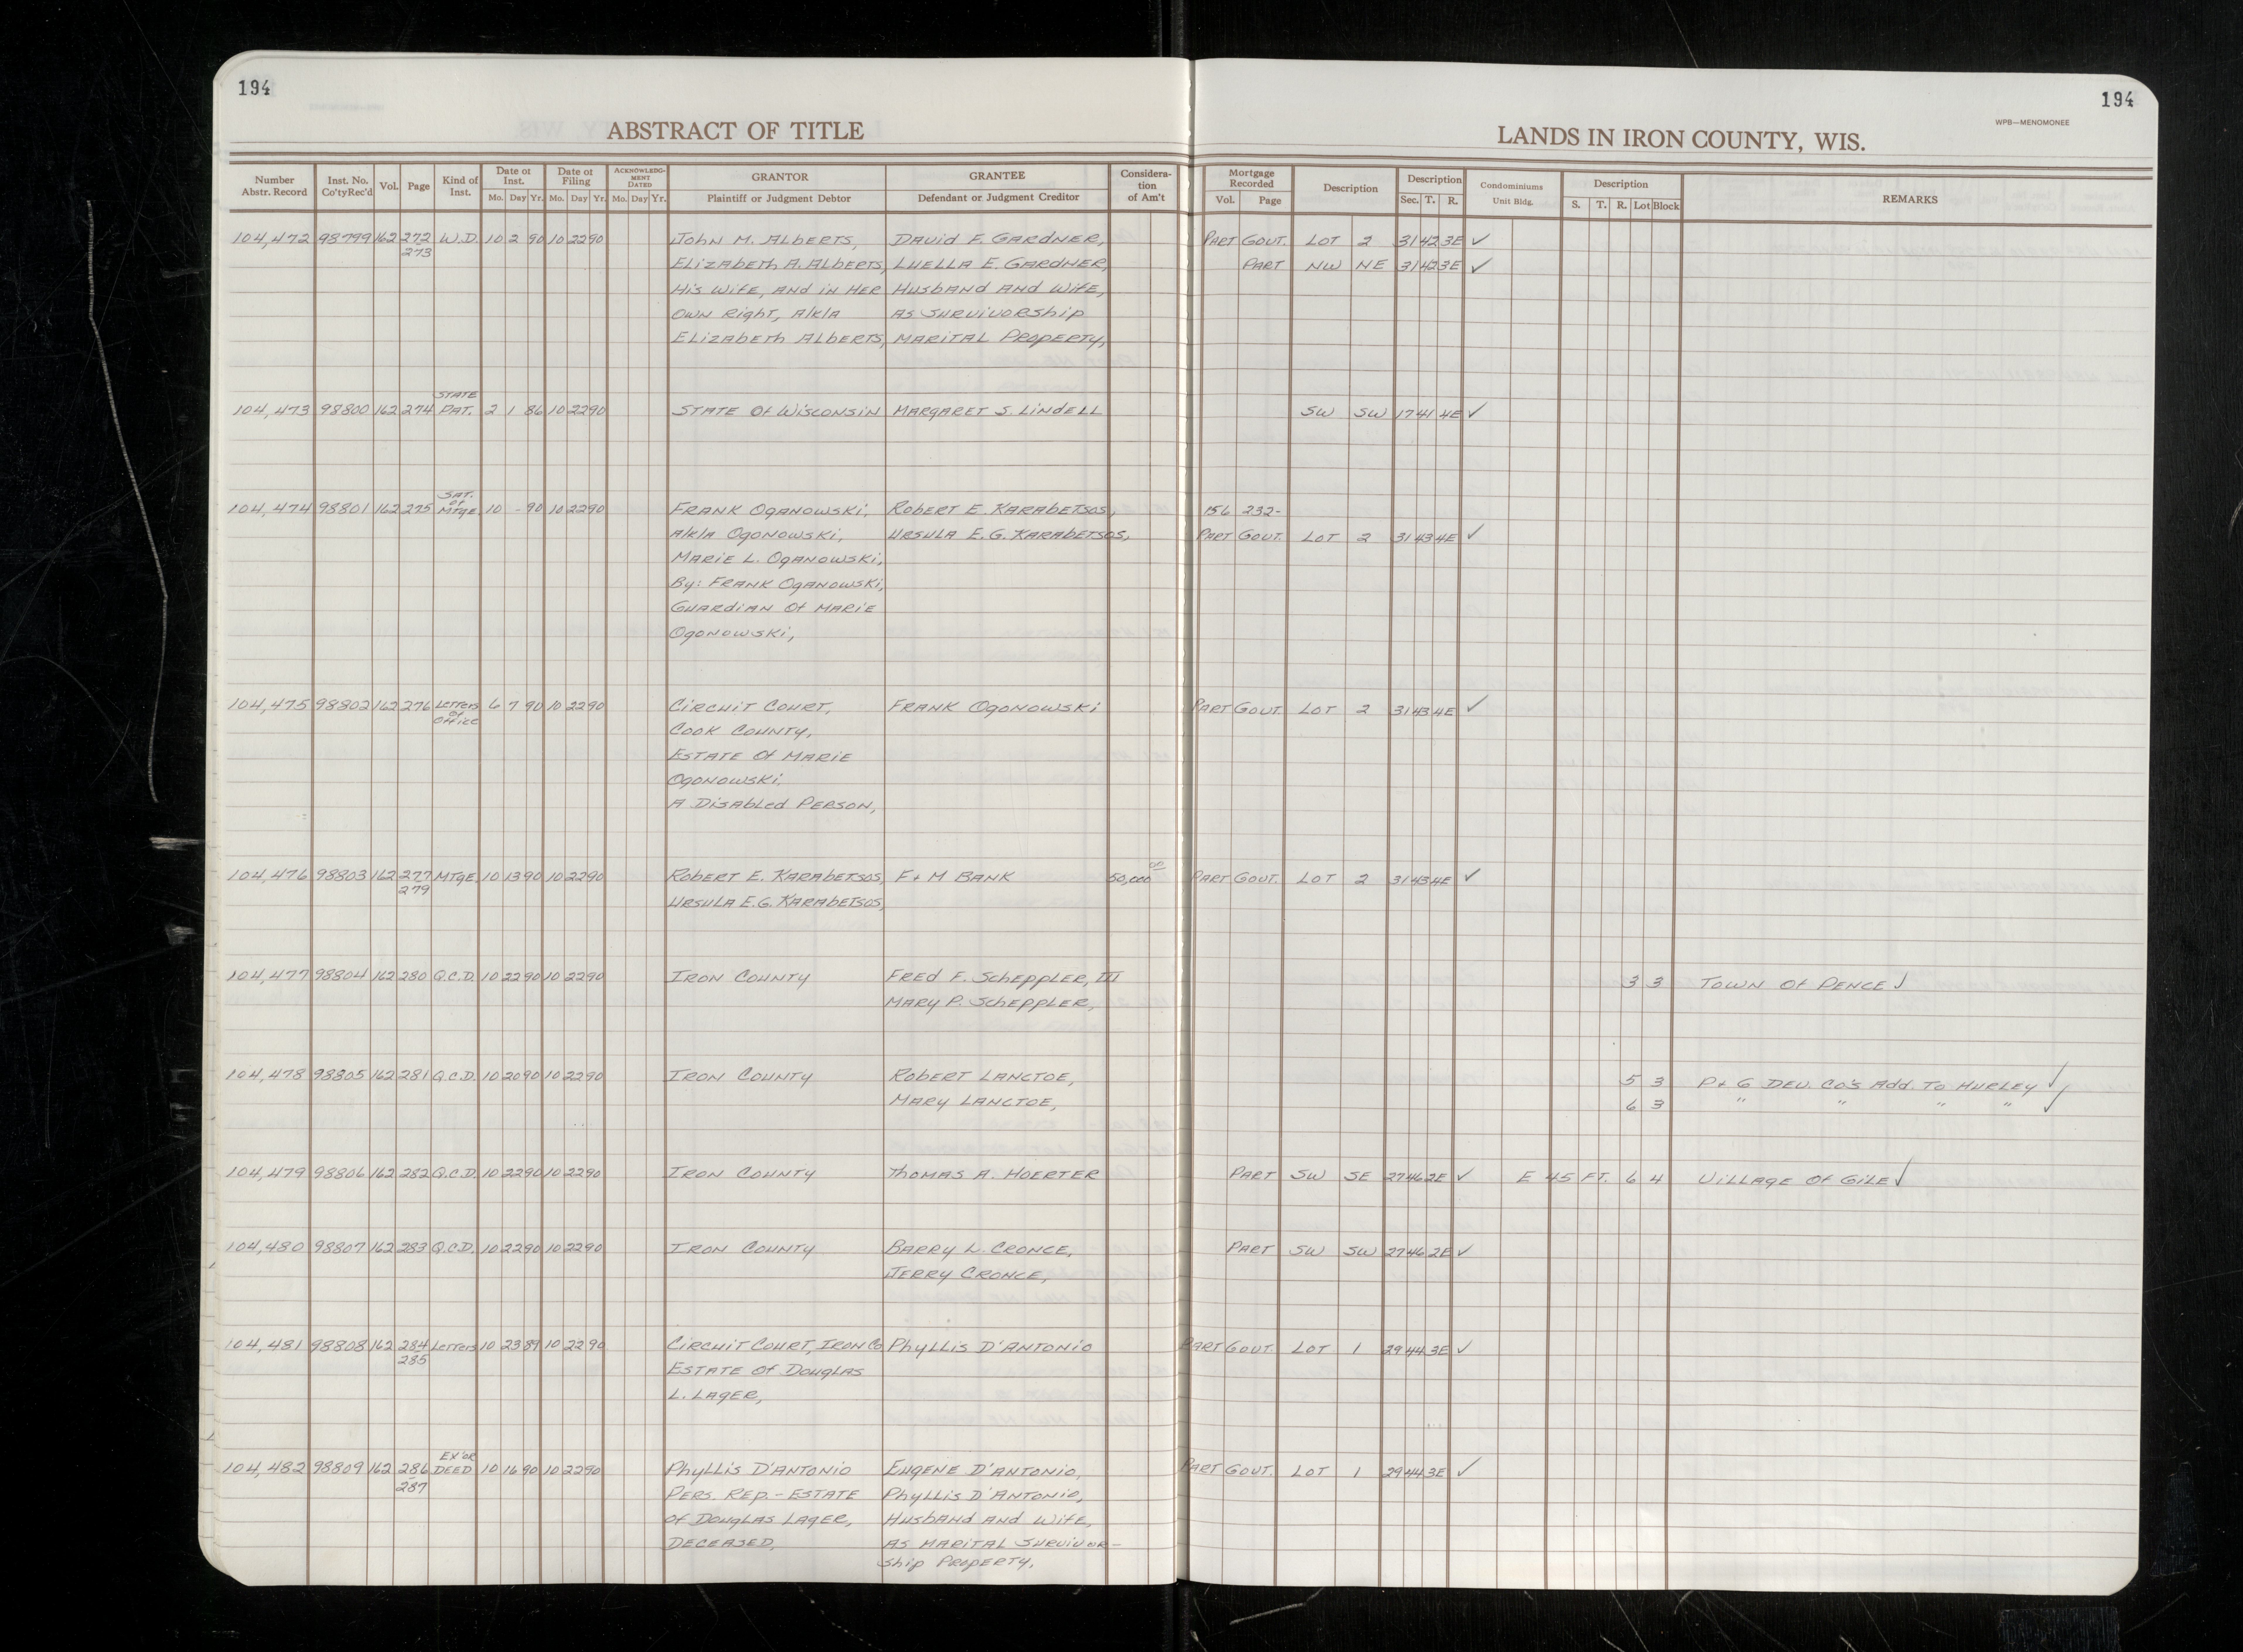 194
194
WPB—MENOMONEE
ABSTRACT OF TITLE
LANDS IN IRON COUNTY, WIS.
Number Abstr. Record | Inst. No. Co'tyRec'd | Vol. | Page | Kind of Inst. | Date of Inst. Mo. Day Yr. | Date of Filing Mo. Day Yr. | ACKNOWLEDG-MENT DATED Mo. Day Yr. | GRANTOR Plaintiff or Judgment Debtor | GRANTEE Defendant or Judgment Creditor | Considera-tion of Am't | Mortgage Recorded Vol. Page | Description | Description Sec. T. R. | Condominiums Unit Bldg. | Description S. T. R. Lot Block | REMARKS
104,472 98799 162 272 W.D. 10 2 90 10 22 90 John M. Alberts, David F. Gardner, Part Gout. Lot 2 31 42 3E ✓
273 Elizabeth A. Alberts, Luella E. Gardner, Part NW NE 31 42 3E ✓
His Wife, and in Her Husband and Wife,
Own Right, A/k/a As Survivorship
Elizabeth Alberts, Marital Property,
State
104,473 98800 162 274 Pat. 2 1 86 10 22 90 State of Wisconsin Margaret S. Lindell SW SW 17 41 4E ✓
Sat.
of
104,474 98801 162 275 Mtge. 10 - 90 10 22 90 Frank Oganowski, Robert E. Karabetsos, 156 232-
A/k/a Ogonowski, Ursula E.G. Karabetsos, Part Gout. Lot 2 31 43 4E ✓
Marie L. Oganowski,
By: Frank Oganowski,
Guardian of Marie
Ogonowski,
104,475 98802 162 276 Letters of Office 6 7 90 10 22 90 Circuit Court, Frank Ogonowski Part Gout. Lot 2 31 43 4E ✓
Cook County,
Estate of Marie
Ogonowski,
A Disabled Person,
104,476 98803 162 277 Mtge. 10 13 90 10 22 90 Robert E. Karabetsos, F+M Bank 50,000 00 Part Gout. Lot 2 31 43 4E ✓
279 Ursula E.G. Karabetsos,
104,477 98804 162 280 Q.C.D. 10 22 90 10 22 90 Iron County Fred F. Scheppler, III 3 3 Town of Pence ✓
Mary P. Scheppler,
104,478 98805 162 281 Q.C.D. 10 20 90 10 22 90 Iron County Robert Lanctoe, 5 3 P+G Dev. Co's Add. To Hurley ✓
Mary Lanctoe, 6 3 " " " " ✓
104,479 98806 162 282 Q.C.D. 10 22 90 10 22 90 Iron County Thomas A. Hoerter Part SW SE 27 46 2E ✓ E 45 Ft. 6 4 Village of Gile ✓
104,480 98807 162 283 Q.C.D. 10 22 90 10 22 90 Iron County Barry L. Cronce, Part SW SW 27 46 2E ✓
Jerry Cronce,
104,481 98808 162 284 Letters 10 23 89 10 22 90 Circuit Court, Iron Co Phyllis D'Antonio Part Gout. Lot 1 29 44 3E ✓
285 Estate of Douglas
L. Lager,
Ex'or
104,482 98809 162 286 Deed 10 16 90 10 22 90 Phyllis D'Antonio Eugene D'Antonio, Part Gout. Lot 1 29 44 3E ✓
287 Pers. Rep. - Estate Phyllis D'Antonio,
of Douglas Lager, Husband and Wife,
Deceased, as Marital Survivor-
ship Property,